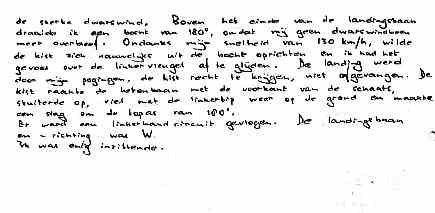 de sterke dwarswind. Boven het einde van de landingsbaan
draaide ik een bocht van 180°, omdat mij geen dwarswindbeen
meer overbleef. Ondanks mijn snelheid van 130 km/h, wilde
de kist zich nauwelijks uit de bocht oprichten en ik had het
gevoel over de linkervleugel af te glijden. De landing werd
door mijn pogingen, de kist recht te krijgen, niet opgevangen. De
kist raakte de betonbaan met de voorkant van de schaats,
stuiterde op, viel met de linkertip weer op de grond en maakte
een slag om de topas van 180°.
Er werd een linkerhand circuit gevlogen. De landingsbaan
en - richting was W.
Ik was enig inzittende.